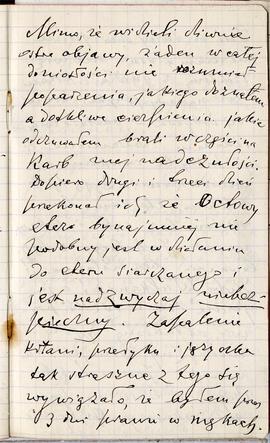 Mimo, że widzieli dziwnie
ostre objawy, żaden w całej
doniosłości nie rozumiał
poparzenia, jakiego doznałem
a dotkliwe cierpienia jakie
odczuwałem brali w części na
karb mej nadczułości.
Dopiero drugi i trzeci dzień
przekonał ich, że Octowy
eter bynajmniej nie
podobny jest w działaniu
do eteru siarczanego i
jest nadzwyczaj niebez-
pieczny. Zapalenie
krtani, przełyku i języczka
tak straszne z tego się
wywiązało, że byłem przez
3 dni prawie w mękach.